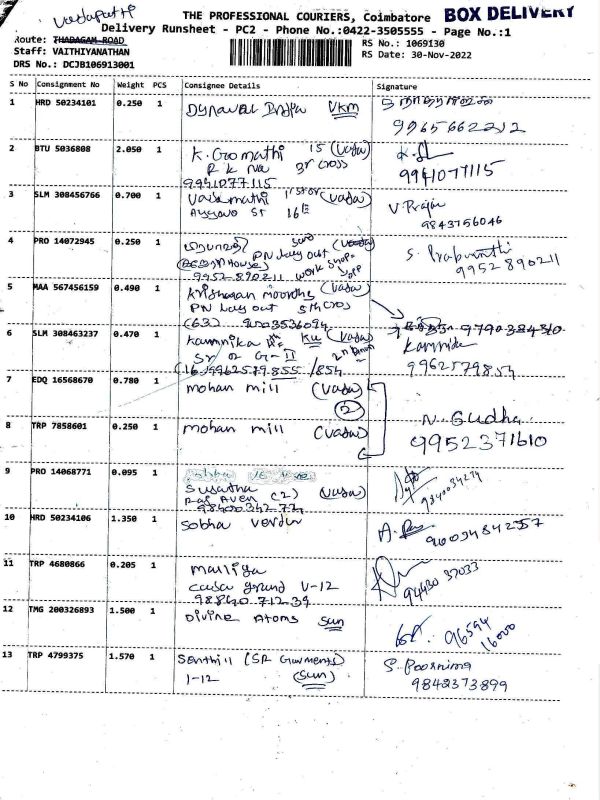 Vadapathi
THE PROFESSIONAL COURIERS, Coimbatore BOX DELIVERY
Delivery Runsheet - PC2 - Phone No.:0422-3505555 - Page No.:1
Route: THADAGAM ROAD
RS No.: 1069130
Staff: VAITHIYANATHAN
RS Date: 30-Nov-2022
DRS No.: DCJB106913001
S No Consignment No Weight PCS Consignee Details Signature
1 HRD 50234101 0.250 1 VKM
9965662212
2 BTU 5036808 2.050 1 K. Gomathi 15 (Vada)
3r cross
9941077115 9941077115
3 SLM 308456766 0.700 1 Vasamathi (Vada) V. Praja
16 9843756046
4 PRO 14072945 0.250 1 PN Lay out (Vada) S. Prabavathi
9952890211 work shop OPP 9952890211
5 MAA 567456159 0.490 1 Krishanan moorthy (Vada)
PN Lay out 5th cross
(63) 9790384310
6 SLM 308463237 0.470 1 Kamnika KU (Vada) Kamnika
Sr G-II
(16) 9962579855 /854 9962579854
7 EDQ 16568670 0.780 1 mohan mill (Vada)
2
N. Sudha
8 TRP 7858601 0.250 1 mohan mill (Vada) 9952371610
9 PRO 14068771 0.095 1
Susatha (2) (Vada)
9840034274
10 HRD 50234106 1.350 1 Sobha verdur
11 TRP 4680866 0.205 1 malliga
casa grand V-12 94430 37033
98840 712 39
12 TMG 200326893 1.500 1 Divine Atoms Sun
96594
16000
13 TRP 4799375 1.570 1 Senthil (SR Garments) S. Poornima
1-12 (Sun) 9842373899